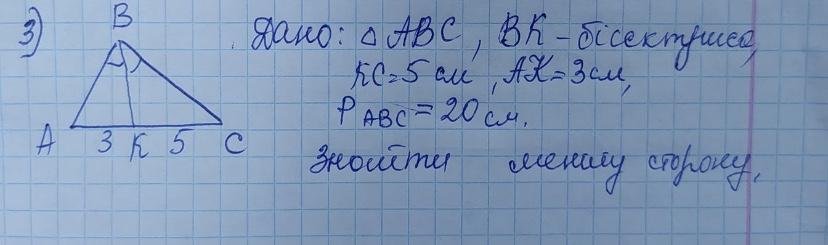 3)
B
Дано: △ ABC, BK - бісектриса,
KC = 5 см, AK = 3 см,
P ABC = 20 см.
A 3 K 5 C
Знайти меншу сторону.